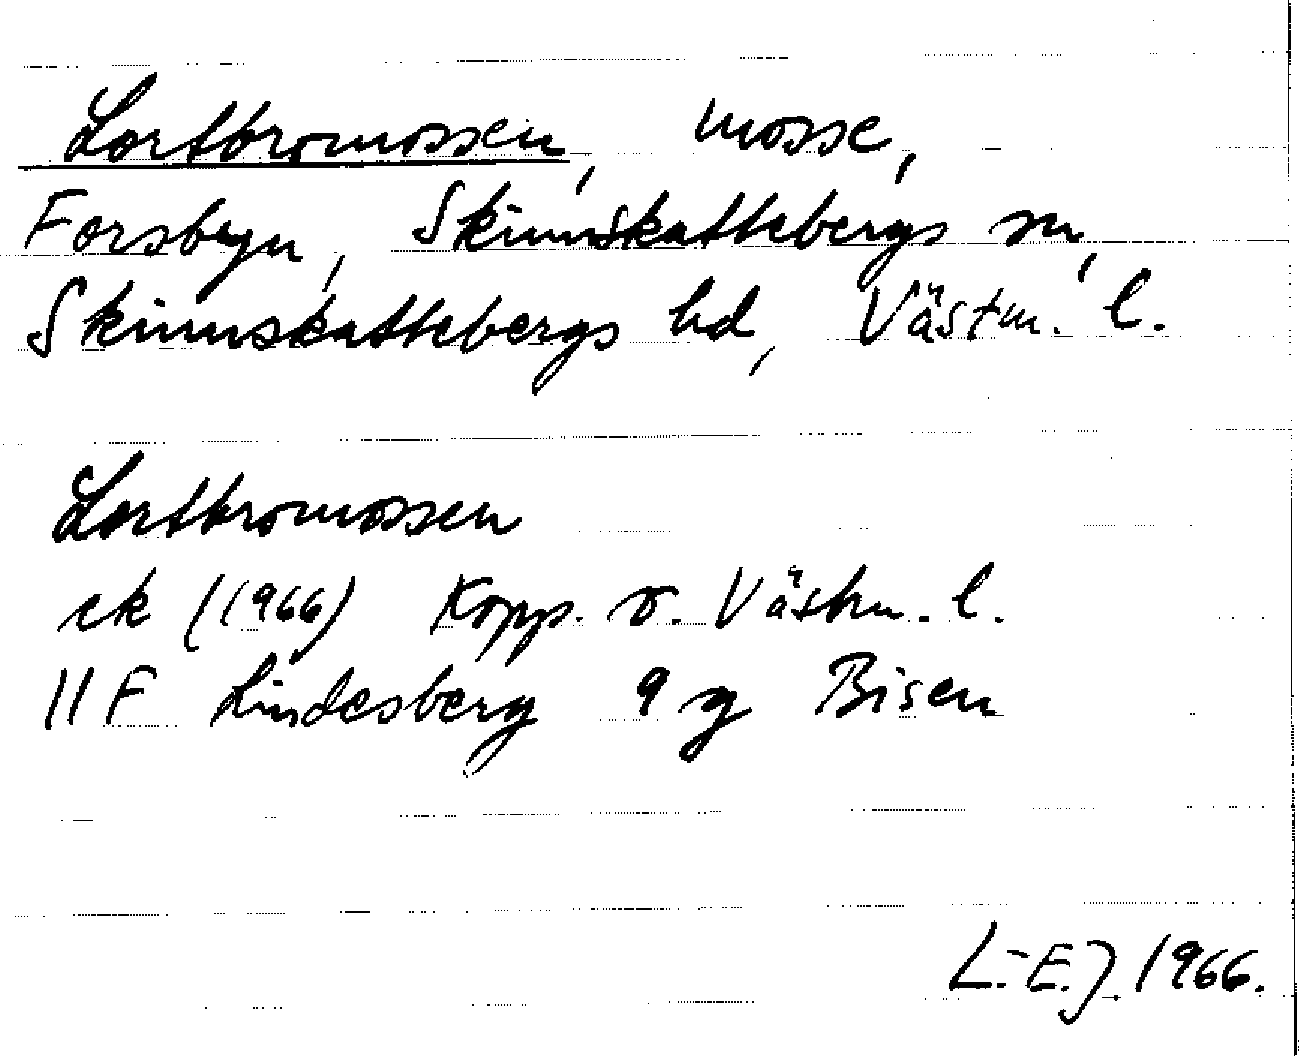 Lortbromossen, mosse,
Forsbyn, Skinnskattebergs sn,
Skinnskattebergs hd, Västm. l.
Lortbromossen
ek (1966) Kopp. o. Västm. l.
11F Lindesberg 9 g Bisen
L.-E.J. 1966.